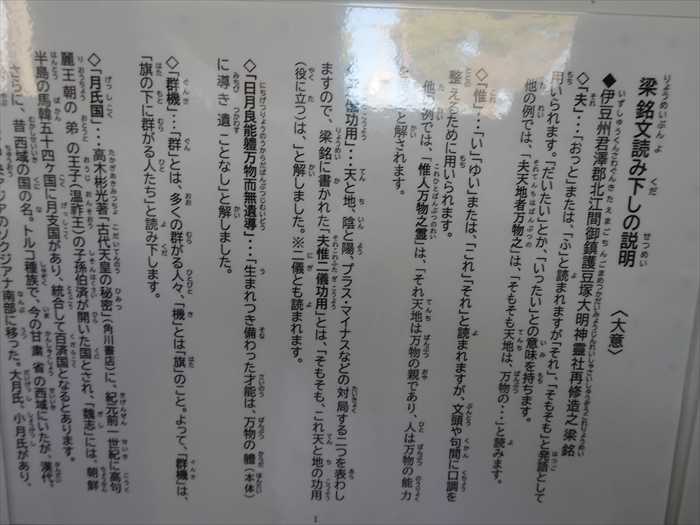 梁銘文読み下しの説明
〈大意〉
◆伊豆州君澤郡北江間御鎮護豆塚大明神靈社再修造之梁銘
◇「夫」・・・「おっと」または、「ふ」と読まれますが「それ」、「そもそも」と発語として
用いられます。「だいたい」とか、「いったい」との意味を持ちます。
他の例では、「夫天地者万物之」は、「そもそも天地は、万物の・・・と読みます。
◇「惟」・・・「い」「ゆい」または、「これ」「それ」と読まれますが、文頭や句間に口調を
整えるために用いられます。
他の例では、「惟人万物之靈」は、「それ天地は万物の親であり、人は万物の能力
と解されます。
功用」・・・天と地、陰と陽、プラス・マイナスなどの対局する二つを表わし
ますので、梁銘に書かれた「夫惟二儀功用」とは、「そもそも、これ天と地の功用
（役に立つ）は、」と解しました。※二儀とも読まれます。
◇「日月良能體万物而無遺導」・・・「生まれつき備わった才能は、万物の體（本体）
に導き遺ことなし」と解しました。
◇「群機」・・・「群」とは、多くの群がる人々、「機」とは「旗」のこと。よって、「群機」は、
「旗の下に群がる人たち」と読み下します。
◇「月氏国」・・・高木彬光著「古代天皇の秘密」（角川書店）に、紀元前一世紀に高句
麗王朝の弟の王子（温祚王）の子孫伯済が開いた国とされ、「魏志」には、朝鮮
半島の馬韓五十四ヶ国に月支国があり、統合して百済国となるとあります。
さらに、昔西域の国の名。トルコ種族で、今の甘粛省の西域にいたが、漢代、
アのソクジアナ南部に移った。大月氏。小月氏があり、
1